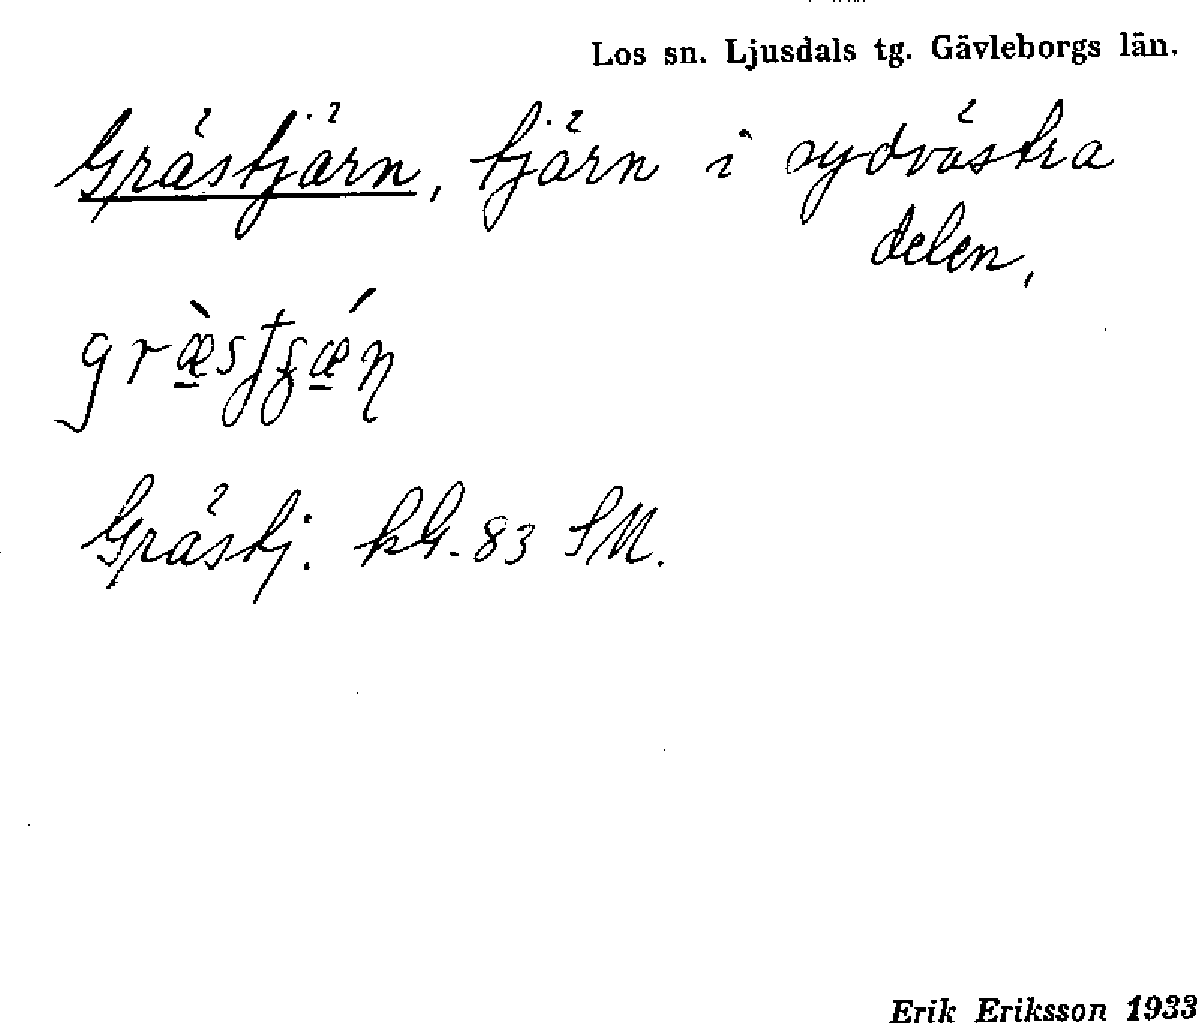 Los sn. Ljusdals tg. Gävleborgs län.
Grästjärn, tjärn i sydvästra
delen,
Grästj. kbl. 83 SM.
Erik Eriksson 1933